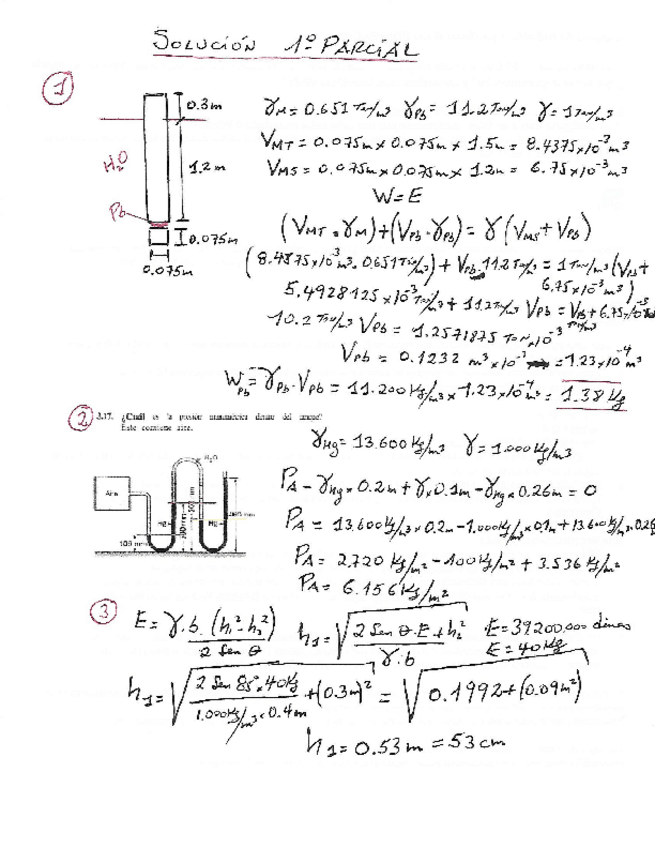 SOLUCIÓN 1º PARCIAL
1
0.3m
H2O
1.2m
Pb
0.075m
0.075m
γM = 0.651 Ton/m3 γPb = 11.2 Ton/m3 γ = 1 Ton/m3
VMT = 0.075m x 0.075m x 1.5m = 8.4375x10^-3 m3
VMS = 0.075m x 0.075m x 1.2m = 6.75x10^-3 m3
W = E
(VMT · γM) + (VPb · γPb) = γ (VMS + VPb)
(8.4375x10^-3 m3 · 0.651 Ton/m3) + VPb · 11.2 Ton/m3 = 1 Ton/m3 (VPb +
6.75x10^-3 m3)
5.4928125x10^-3 Ton/m3 + 11.2 Ton/m3 VPb = VPb + 6.75x10^-3
10.2 Ton/m3 VPb = 1.2571875 Ton x 10^-3
VPb = 0.1232 m3 x 10^-3 = 1.23x10^-4 m3
WPb = γPb · VPb = 11.200 Kg/m3 x 1.23x10^-4 = 1.38 Kg
2
3.17. ¿Cuál es la presión manométrica dentro del tanque?
Este contiene aire.
Aire
H2O
Hg
Hg
γHg = 13.600 Kg/m3 γ = 1.000 Kg/m3
PA - γHg x 0.2m + γ x 0.1m - γHg x 0.26m = 0
PA = 13.600 Kg/m3 x 0.2m - 1.000 Kg/m3 x 0.1m + 13.600 Kg/m3 x 0.26
PA = 2.720 Kg/m2 - 100 Kg/m2 + 3.536 Kg/m2
PA = 6.156 Kg/m2
3
E = γ.b. (h1^2 - h2^2) / 2 Sen θ h1 = √(2 Sen θ . E + h2^2 / γ.b) E = 39200.000 dinas
E = 40 Kg
h1 = √(2 Sen 85º x 40 Kg / 1.000 Kg/m3 x 0.4m + (0.3m)^2) = √(0.1992 + (0.09m^2))
h1 = 0.53 m = 53 cm